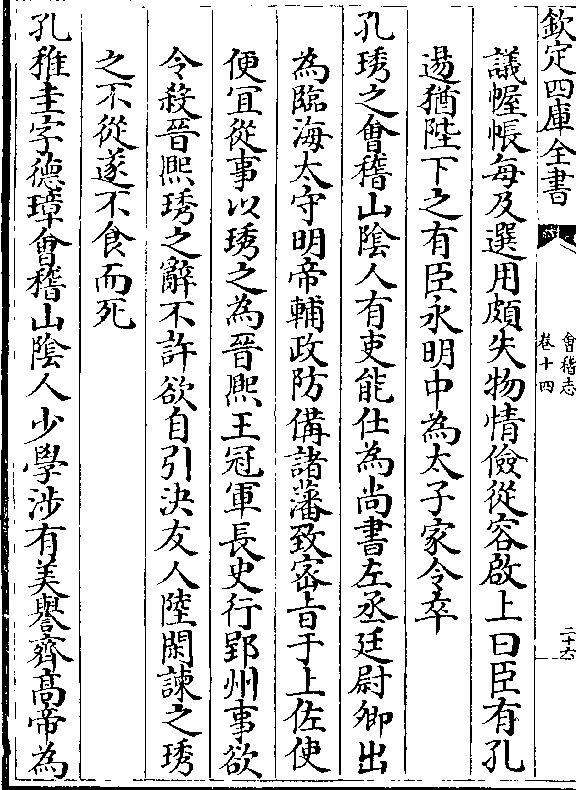 欽定四庫全書
會稽志
卷十四
二十六
議幄帳每及選用頗失物情儉從容啟上曰臣有孔
逷猶陛下之有臣永明中為太子家令卒
孔琇之會稽山陰人有吏能仕為尚書左丞廷尉卿出
為臨海太守明帝輔政防備諸藩致密㫖于上佐使
便宜從事以琇之為晉熙王冠軍長史行郢州事欲
令殺晉熙琇之辭不許欲自引決友人陸閑諫之琇
之不從遂不食而死
孔稚圭字德璋會稽山陰人少學涉有美譽齊髙帝為